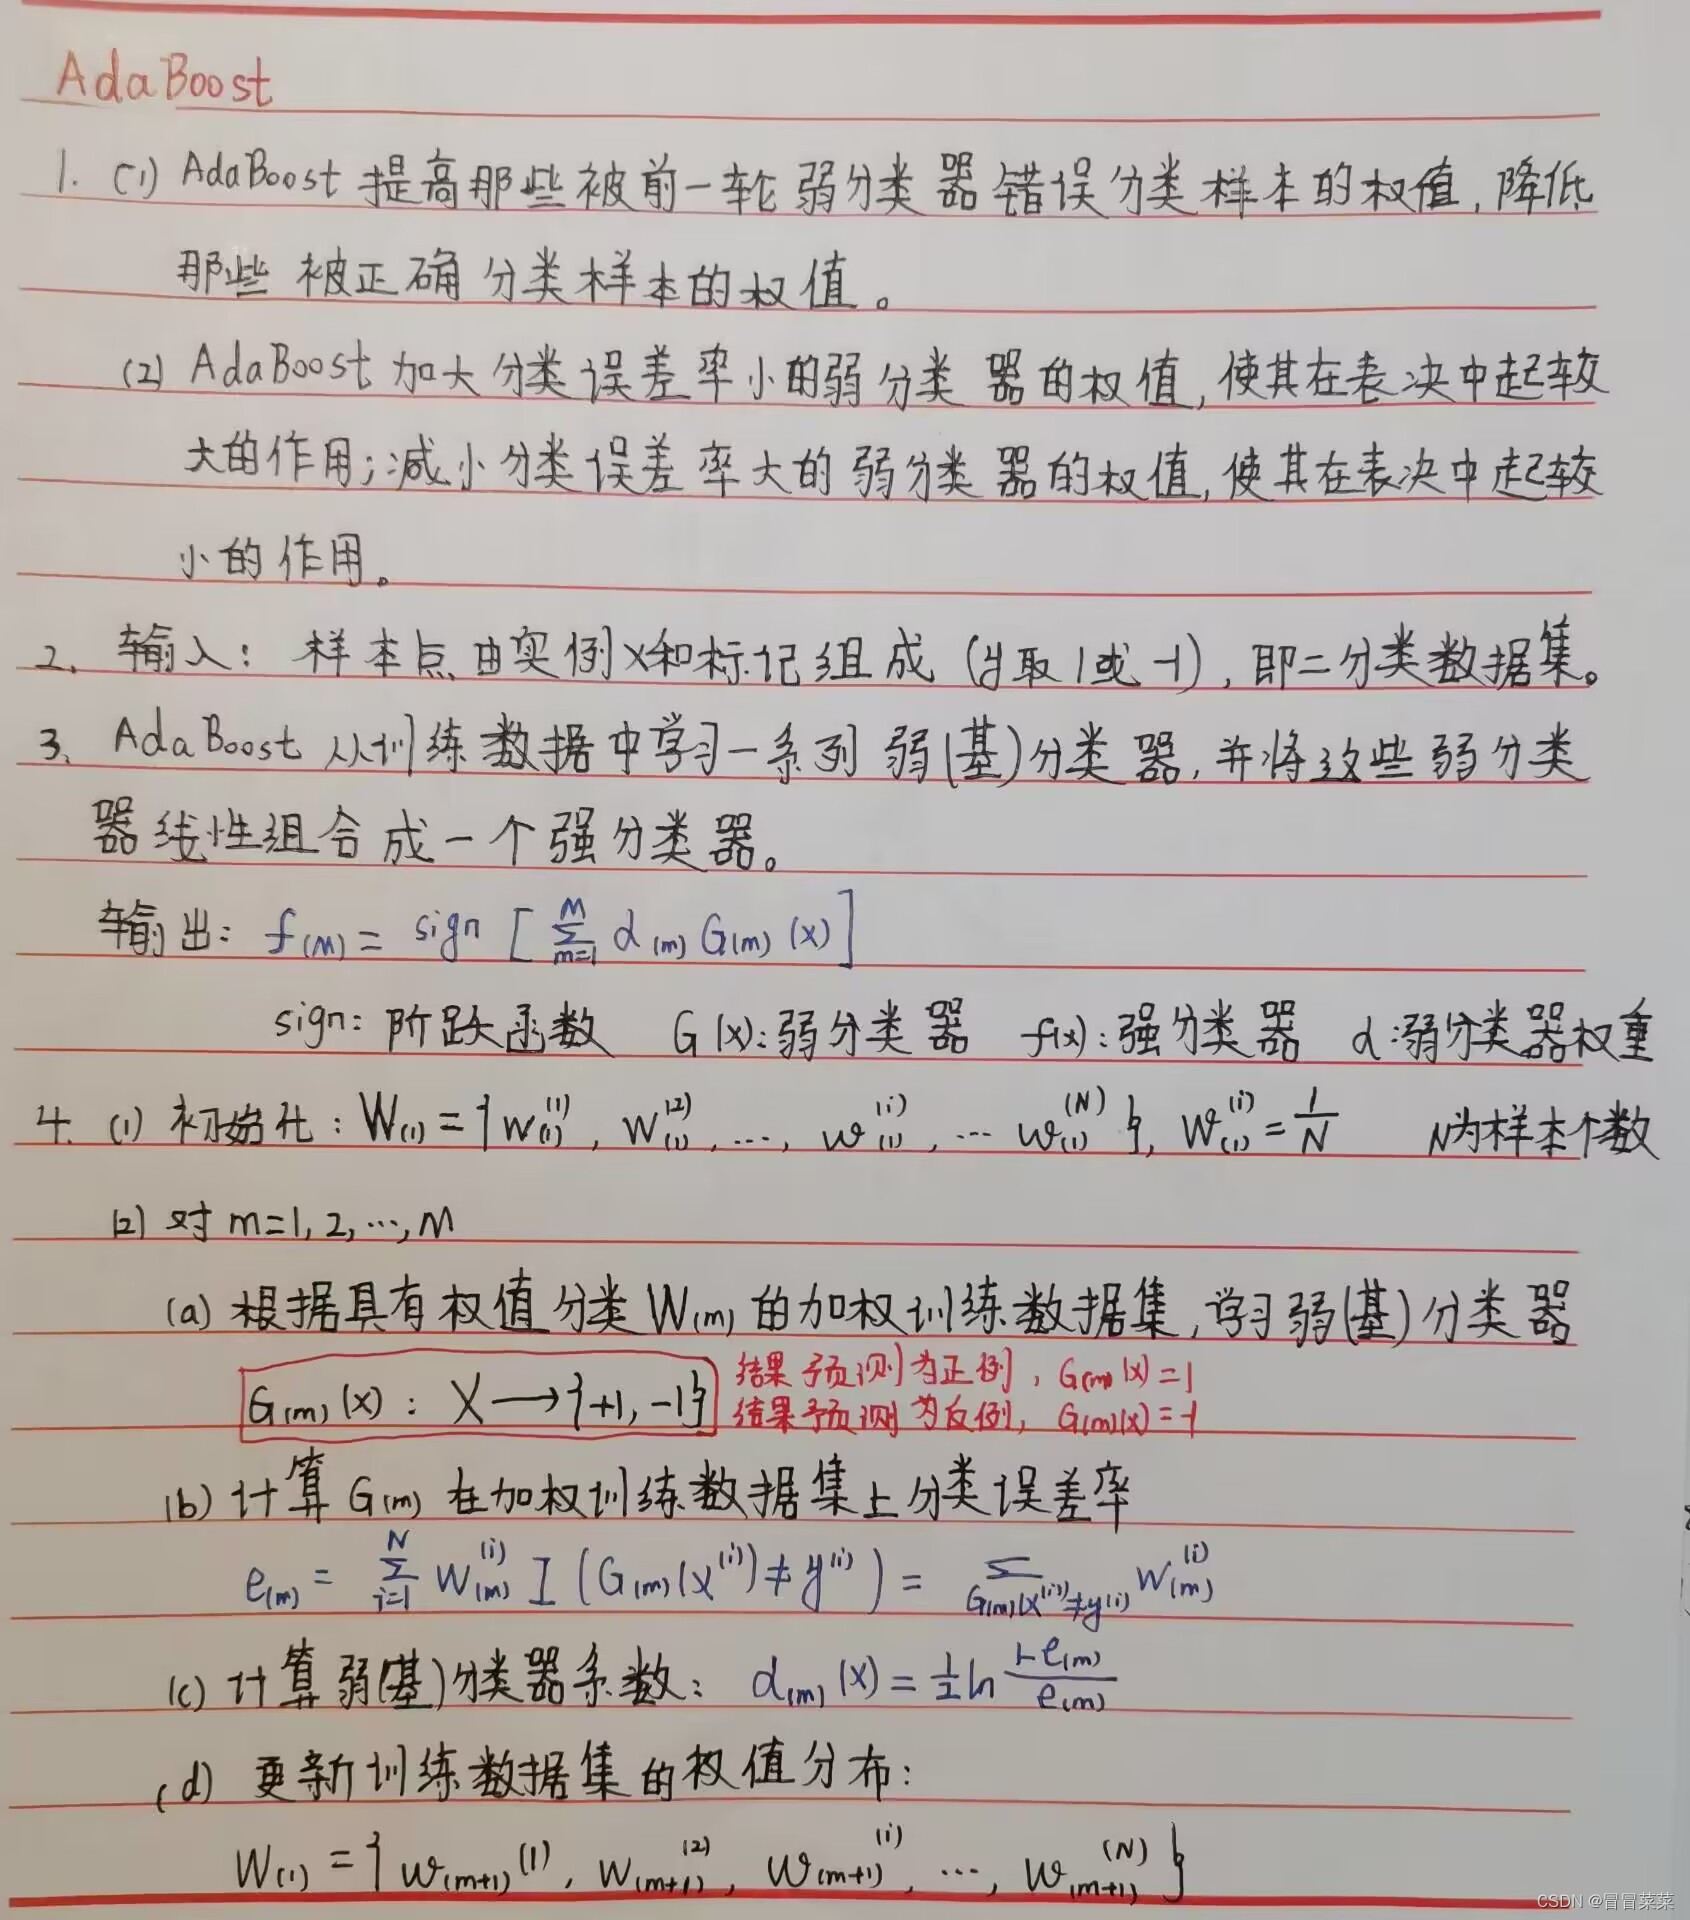 AdaBoost
1. (1) AdaBoost 提高那些被前一轮弱分类器错误分类样本的权值,降低
那些被正确分类样本的权值。
(2) AdaBoost 加大分类误差率小的弱分类器的权值,使其在表决中起较
大的作用;减小分类误差率大的弱分类器的权值,使其在表决中起较
小的作用。
2. 输入: 样本点由实例x和标记组成 (y取1或-1), 即二分类数据集。
3. AdaBoost 从训练数据中学习一系列弱(基)分类器,并将这些弱分类
器线性组合成一个强分类器。
输出: f(M) = sign [ ∑_{m=1}^{M} α(m) G(m) (x) ]
sign: 阶跃函数 G(x):弱分类器 f(x):强分类器 α:弱分类器权重
4. (1) 初始化: W_(1) = { w_(1)^(1), w_(1)^(2), ..., w_(1)^(i), ... w_(1)^(N) }, w_(1)^(i) = 1/N N为样本个数
(2) 对 m=1, 2, ..., M
(a) 根据具有权值分类W(m)的加权训练数据集,学习弱(基)分类器
G(m) (x) : X ⟶ {+1, -1} 结果预测为正例, G(m)(x)=1
结果预测为反例, G(m)(x)=-1
(b) 计算 G(m) 在加权训练数据集上分类误差率
e(m) = ∑_{i=1}^{N} w_(m)^(i) I (G(m)(x^(i)) ≠ y^(i)) = ∑_{G(m)(x^(i))≠y^(i)} w_(m)^(i)
(c) 计算弱(基)分类器系数: α(m) (x) = 1/2 ln (1-e(m))/e(m)
(d) 更新训练数据集的权值分布:
W_(1) = { w_(m+1)^(1), w_(m+1)^(2), w_(m+1)^(i), ..., w_(m+1)^(N) }
CSDN @冒冒菜菜